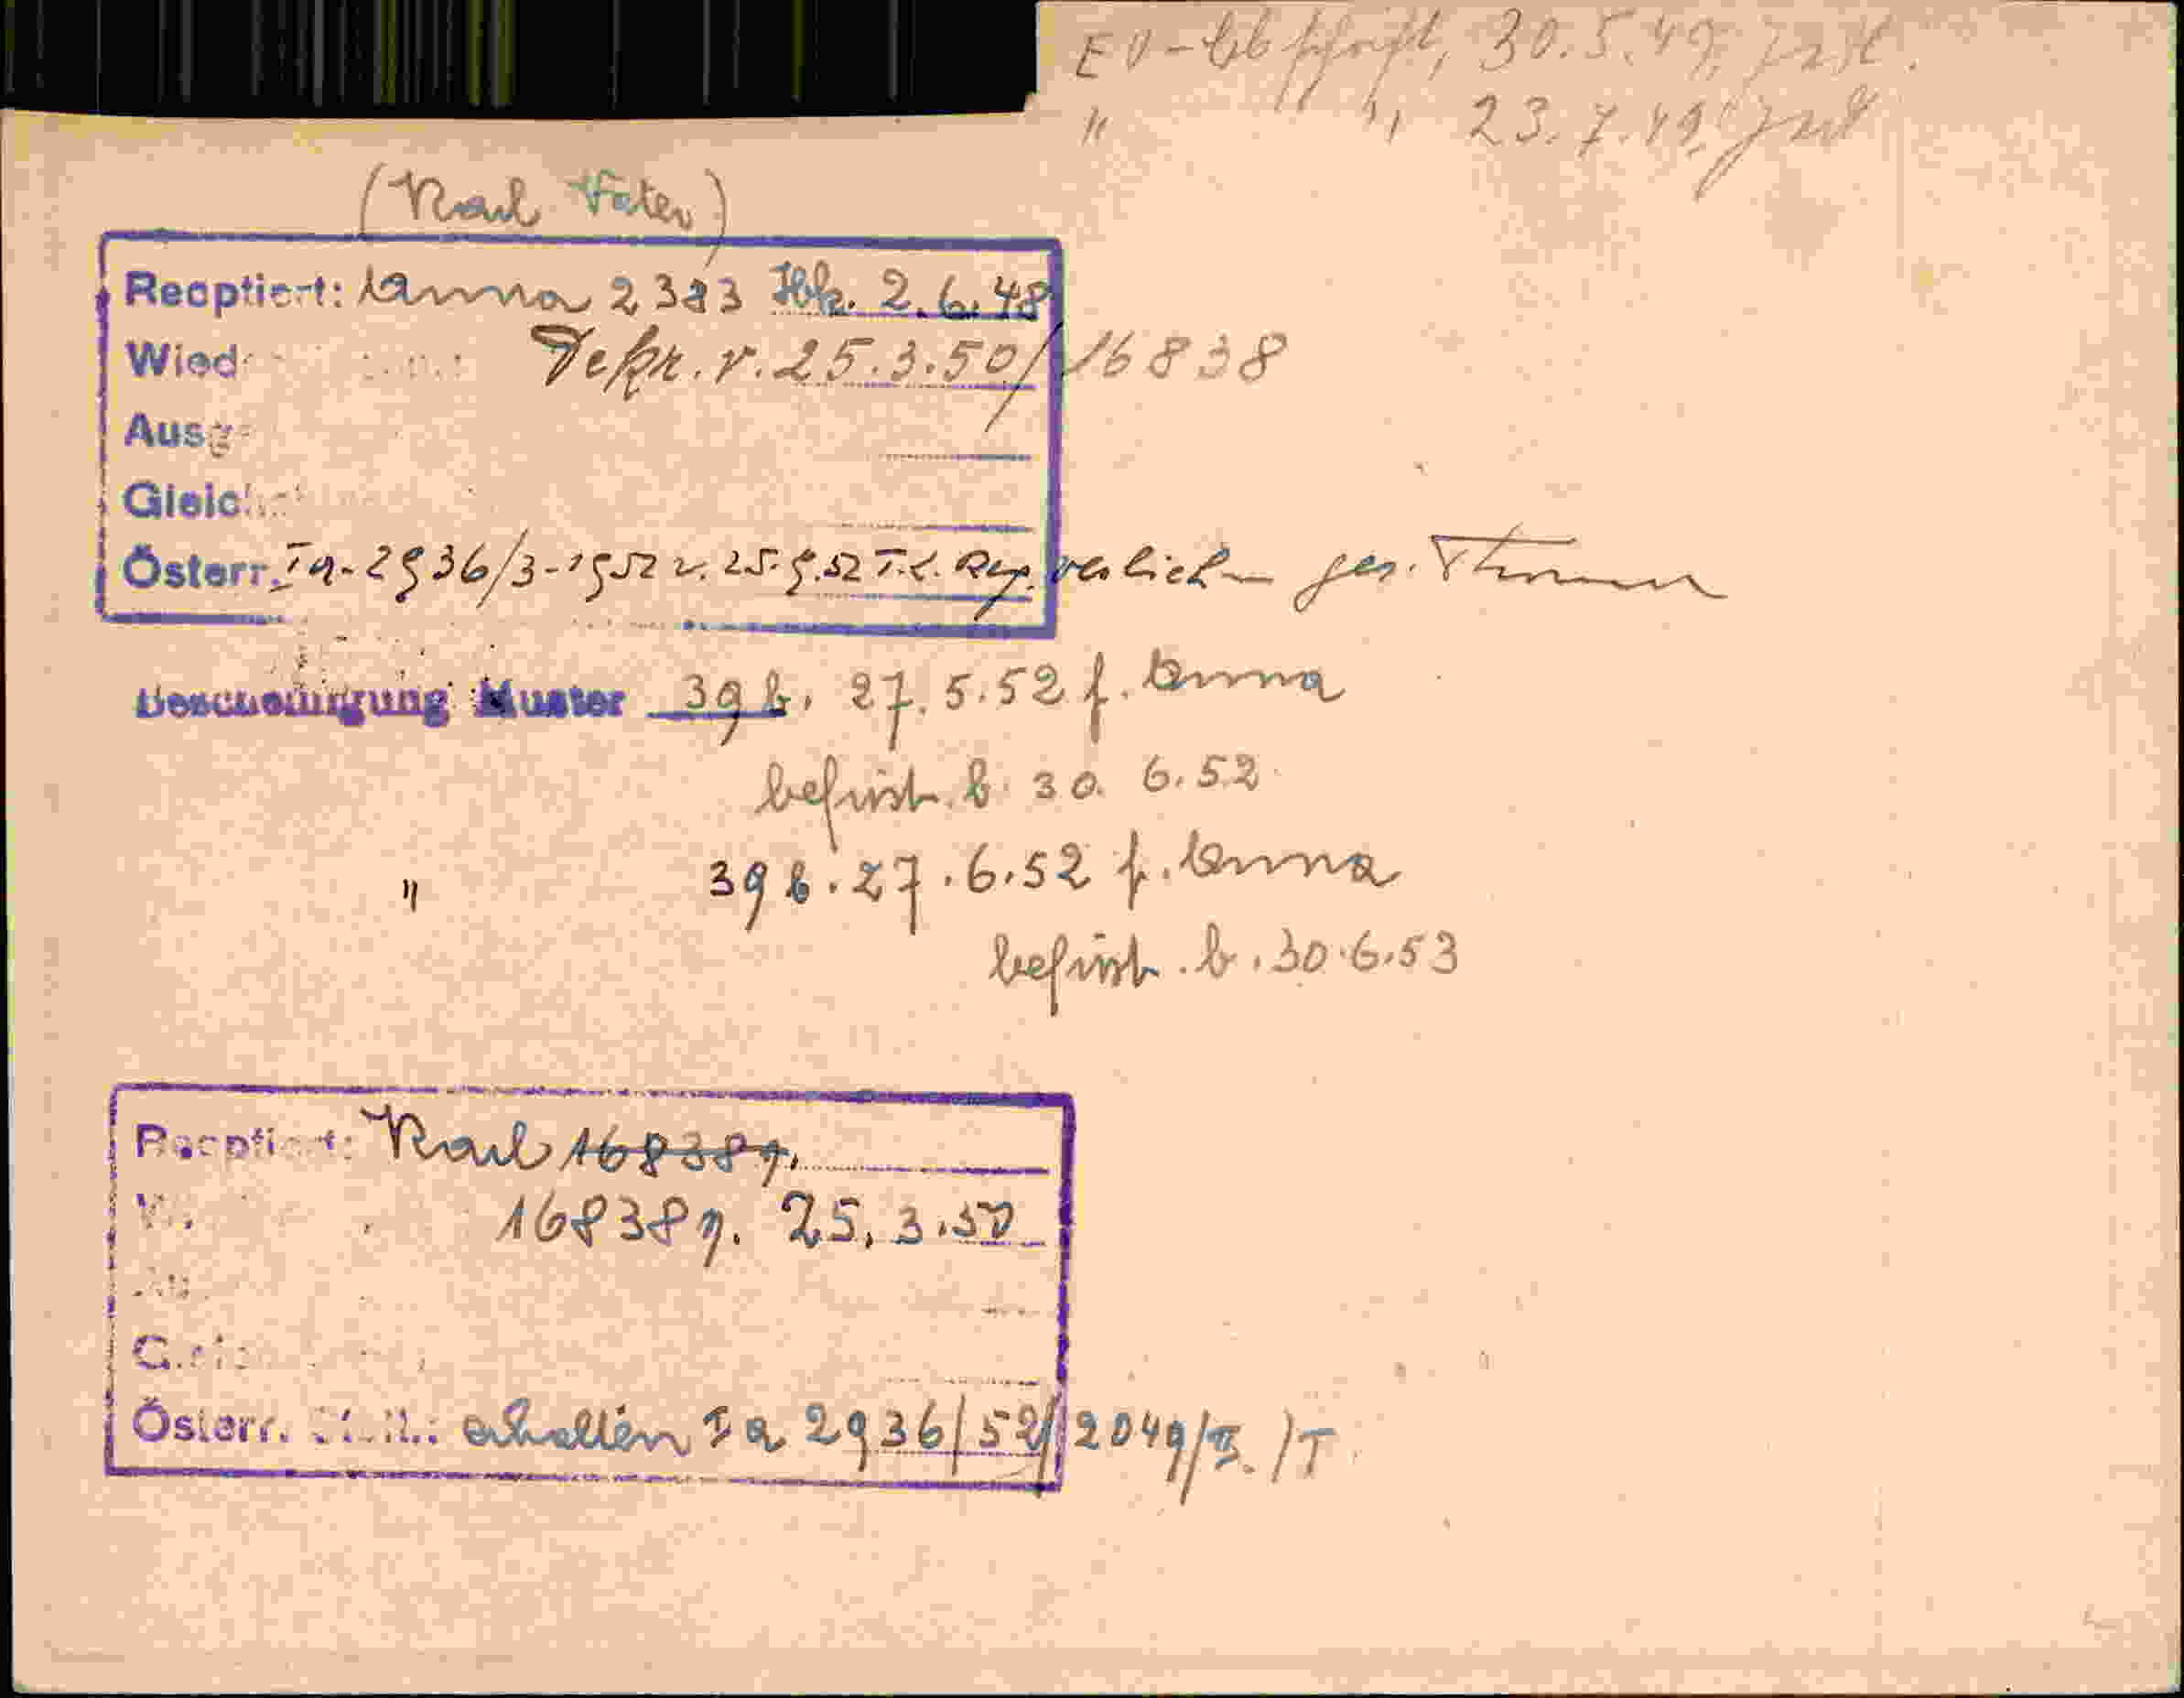 EV-Abschrift, 30.5.49.
" " 23.7.49.
(Karl Vater)
Reoptiert: Anna 2383 Hk. 2.6.48
Wied Dekr. v. 25.3.50/16838
Ausg
Gleich
Österr. Ia-2936/3-1952 v. 25.9.52 T.L. Reg. verliehen gez.
Bescheinigung Muster 39 b. 27.5.52 f. Anna
befrist. b. 30. 6.52
" 39 b. 27.6.52 f. Anna
befrist. b. 30.6.53
Reoptiert: Karl 16838g.
16838g. 25.3.50
Österr. St.B.: erhalten Ia 2936/52//2049/II./T